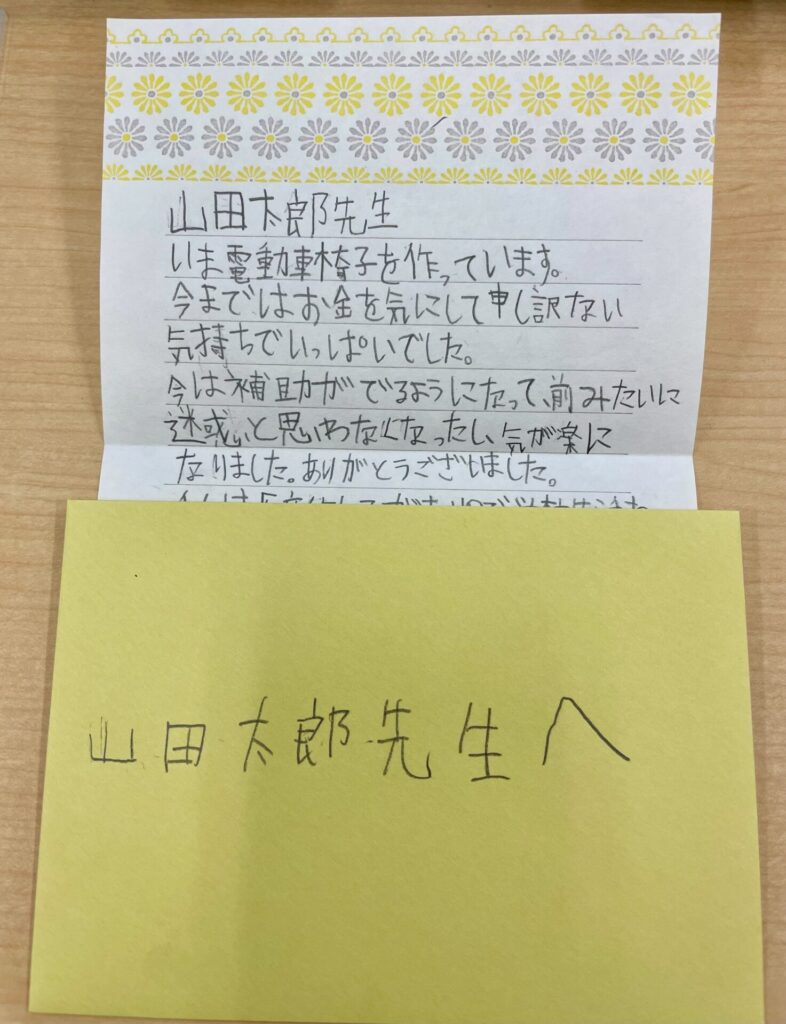 山田太郎先生
いま電動車椅子を作っています。
今まではお金を気にして申し訳ない
気持ちでいっぱいでした。
今は補助がでるようになって、前みたいに
迷惑と思わなくなったし、気が楽に
なりました。ありがとうございました。
山田太郎先生へ